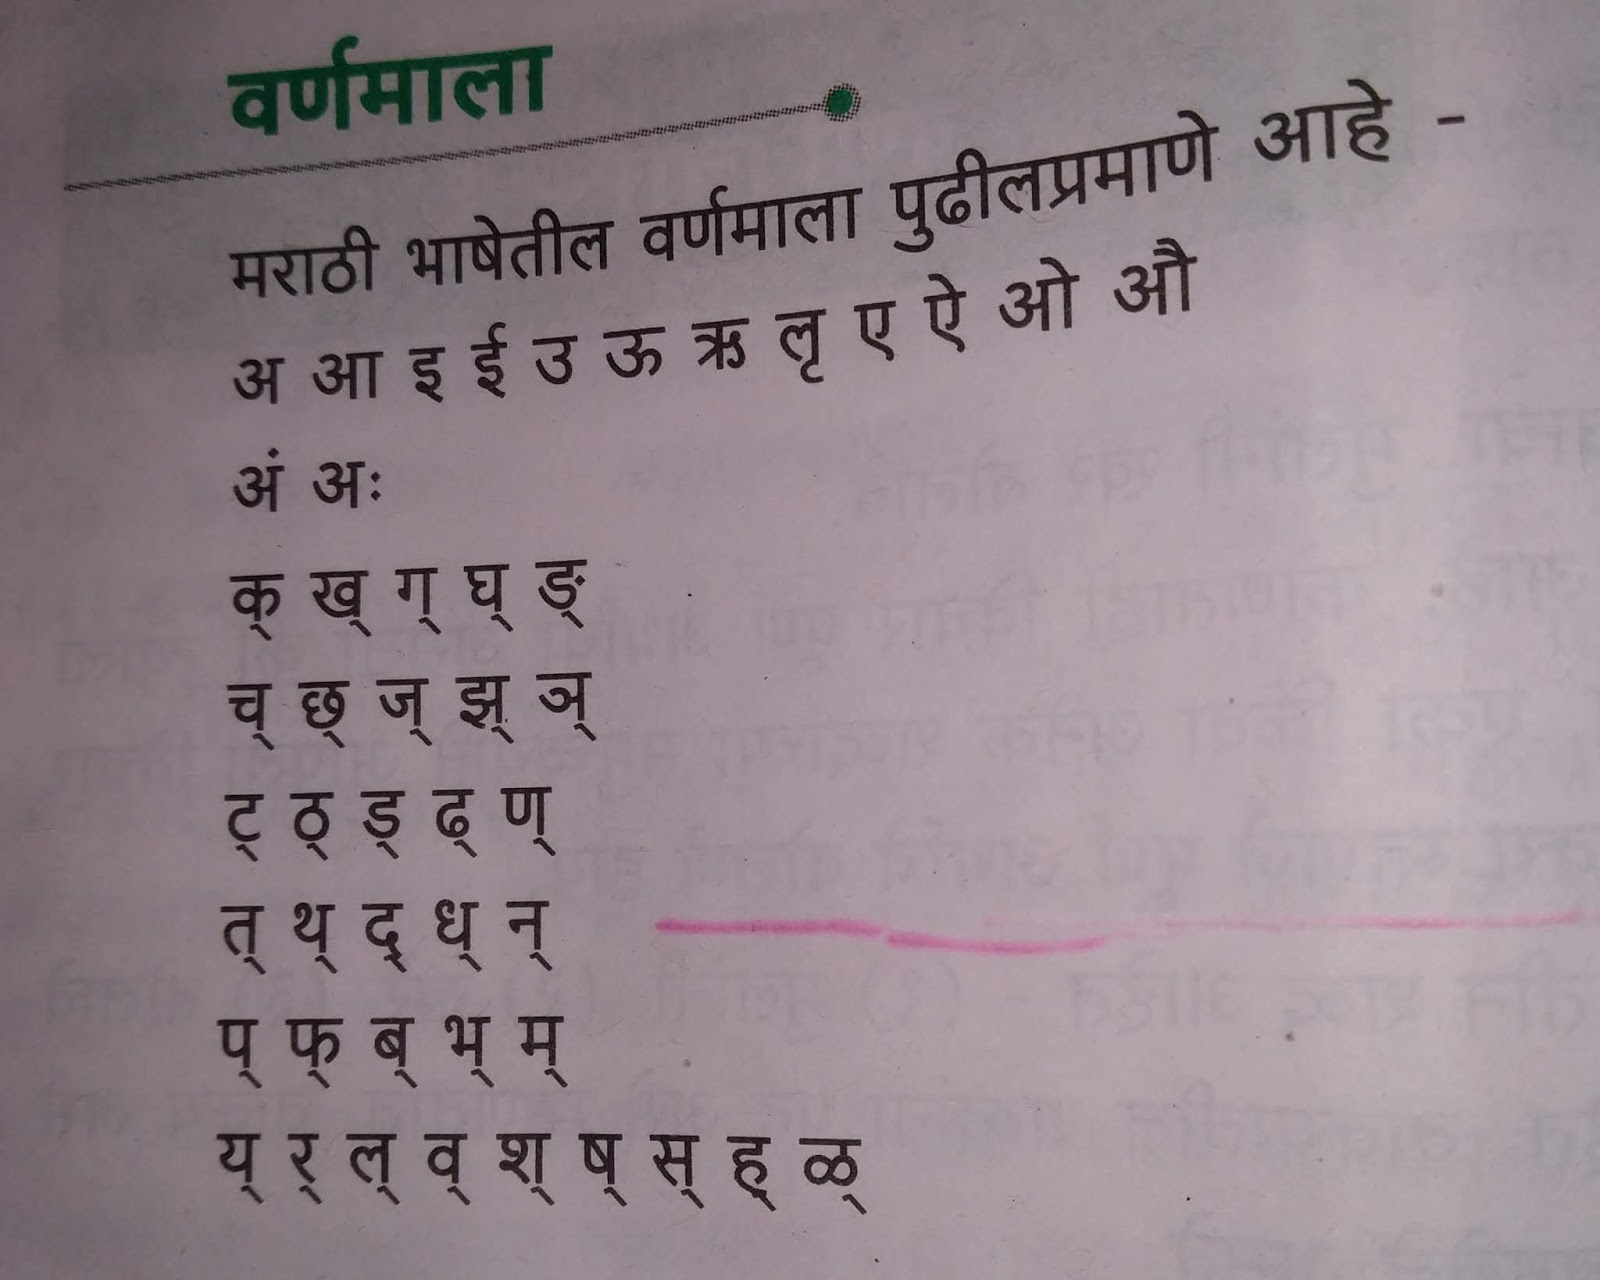 वर्णमाला
मराठी भाषेतील वर्णमाला पुढीलप्रमाणे आहे -
अ आ इ ई उ ऊ ऋ लृ ए ऐ ओ औ
अं अः
क् ख् ग् घ् ङ्
च् छ् ज् झ् ञ्
ट् ठ् ड् ढ् ण्
त् थ् द् ध् न्
प् फ् ब् भ् म्
य् र् ल् व् श् ष् स् ह् ळ्